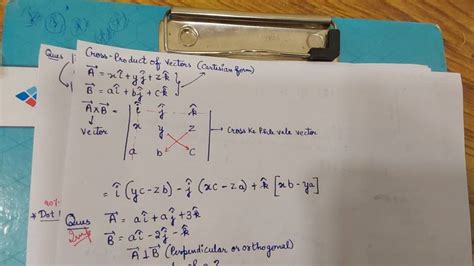 Ques Cross-Product of Vectors (Cartesian form)
A⃗ = xî + yĵ + zk̂
B⃗ = aî + bĵ + ck̂
A⃗×B⃗ = | î ĵ k̂ |
Vector
x y z → Cross Ke Pehle vale vector
a b c
= î (yc-zb) - ĵ (xc-za) + k̂ [xb-ya]
* Dot!
Ques A⃗ = aî + aĵ + 3k̂
B⃗ = aî - 2ĵ - k̂
A⃗ ⊥ B⃗ (Perpendicular or orthogonal)